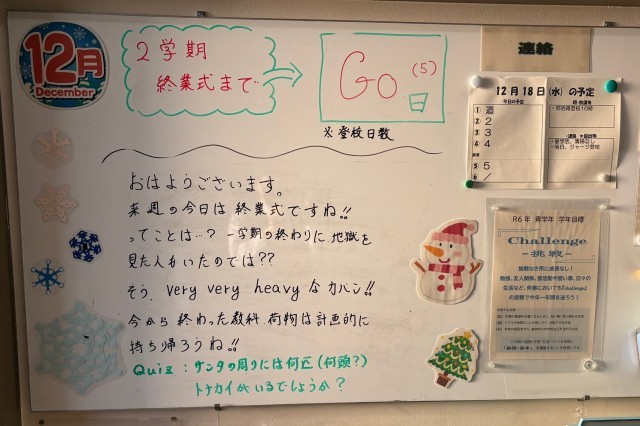 12月
December
2学期
終業式まで…
Go (5)
日
※登校日数
おはようございます。
来週の今日は終業式ですね!!
ってことは…? 一学期の終わりに地獄を
見た人もいたのでは??
そう、very very heavyなカバン!!
今から終わった教科、荷物は計画的に
持ち帰ろうね!!
Quiz:サンタの周りには何匹(何頭?)
トナカイがいるでしょうか?
連絡
12月18日(水)の予定
今日の予定
① 道
② 2
③ 3
④ 4
⑤ 5
⑥ /
R6年 学年目標
Challenge
-挑戦-